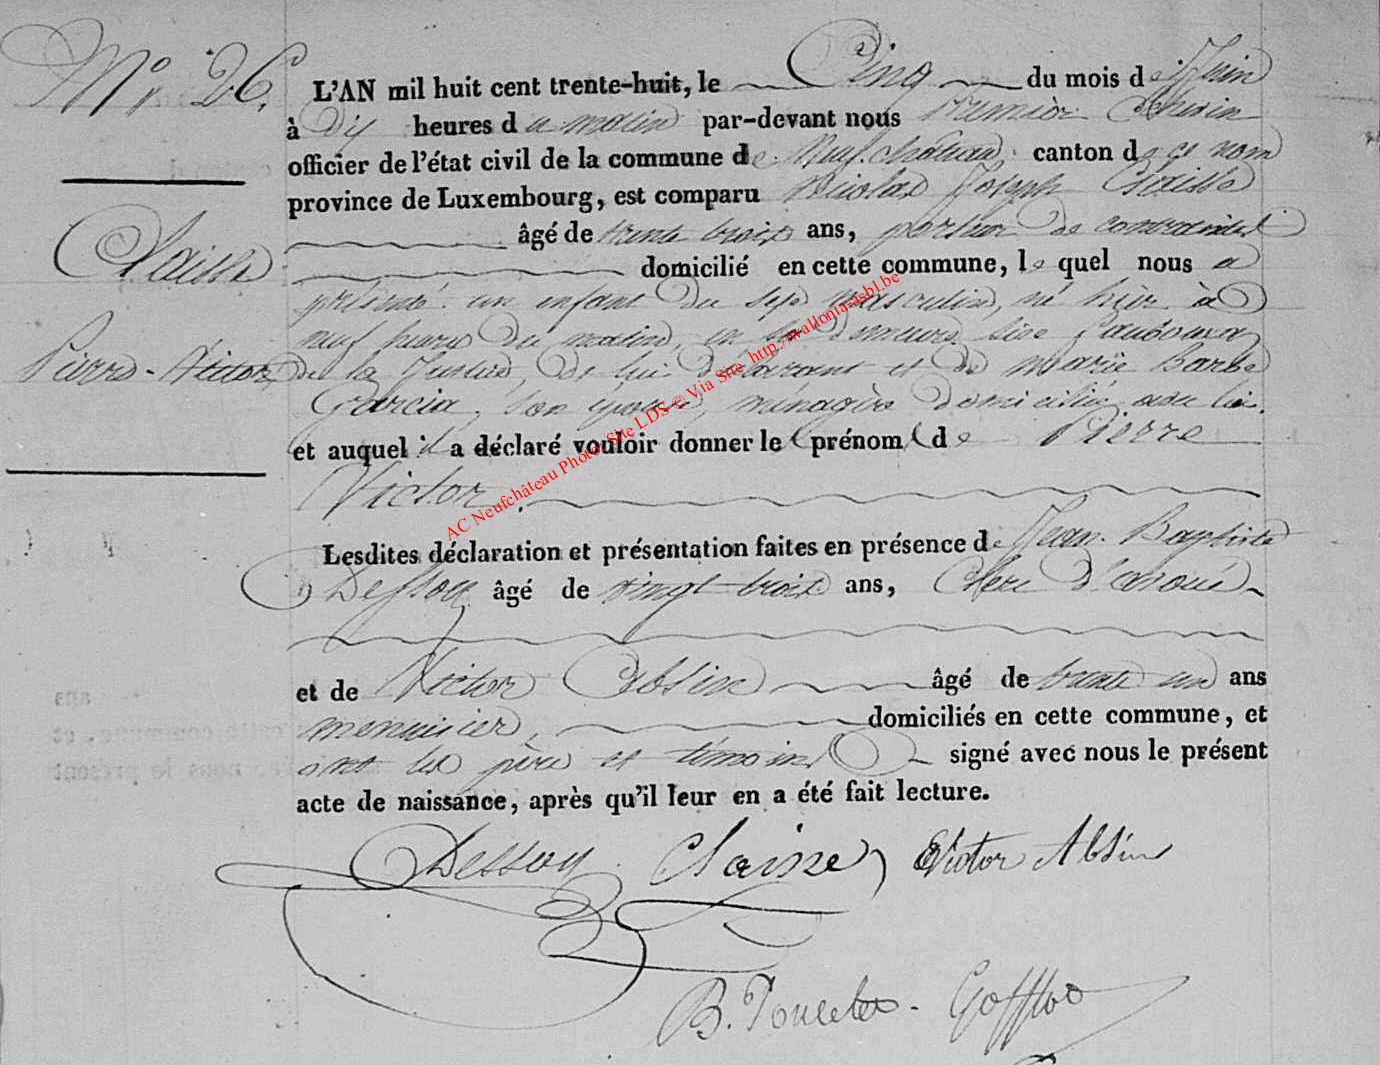 N° 26.
L'AN mil huit cent trente-huit, le Cinq du mois de Juin
à Dix heures du matin par-devant nous Premier Echevin
officier de l'état civil de la commune de Neufchateau, canton de ce nom
province de Luxembourg, est comparu Nicolas Joseph Claisse
âgé de trente trois ans, porteur de contraintes
domicilié en cette commune, lequel nous a
présenté un enfant du sexe masculin, né hier à
neuf heures du matin, en sa demeure sise faubourg
de la Justice, de lui déclarant et de Marie Barbe
Garcia, son épouse, ménagère domiciliée avec lui.
et auquel il a déclaré vouloir donner le prénom de Pierre
Victor.
Claisse
Pierre-Victor
Lesdites déclaration et présentation faites en présence de Jean-Baptiste
Dessoy âgé de vingt-trois ans, Clerc d'avoué
et de Victor Absin âgé de trente un ans
menuisier, domiciliés en cette commune, et
ont les père et témoins signé avec nous le présent
acte de naissance, après qu'il leur en a été fait lecture.
Dessoy Claisse Victor Absin
B. Poncelet - Goffloo
AC Neufchâteau Photo Site LDS © Via Site http://wallonia-asbl.be